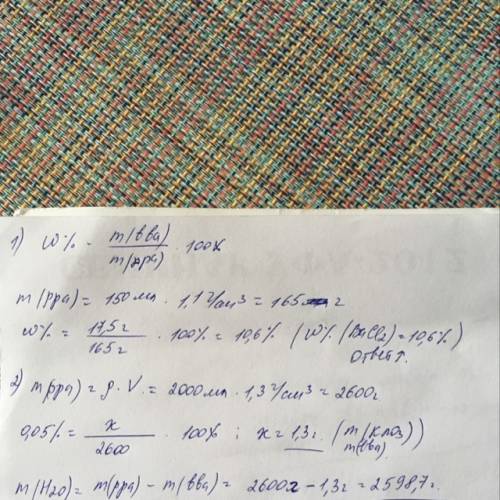 1) W% = m(вва)/m(рра) · 100%
m(рра) = 150мл · 1,1 г/см³ = 165 г
W% = 17,5г/165г · 100% = 10,6% (W% (BaCl2) = 10,6%)
ответ.
2) m(рра) = ρ · V = 2000мл · 1,3 г/см³ = 2600г
0,05% = x/2600 · 100% ; x = 1,3г (m(KNO3))
m(вва)
m(H2O) = m(рра) - m(вва) = 2600г - 1,3г = 2598,7г.